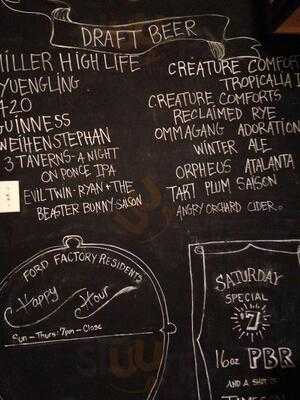 DRAFT BEER
MILLER HIGH LIFE
YUENGLING
420
GUINNESS
WEIHENSTEPHAN
3 TAVERNS - A NIGHT
ON PONCE IPA
EVIL TWIN - RYAN + THE
BEASTER BUNNY - SAISON
CREATURE COMFORTS
TROPICALIA
CREATURE COMFORTS
RECLAIMED RYE
OMMAGANG ADORATION
WINTER ALE
ORPHEUS ATALANTA
TART PLUM SAISON
ANGRY ORCHARD CIDER.
FORD FACTORY RESIDENTS
Happy Hour
Sun - Thurs: 7pm - Close
SATURDAY
SPECIAL
$7
16oz PBR
AND A SHOT OF